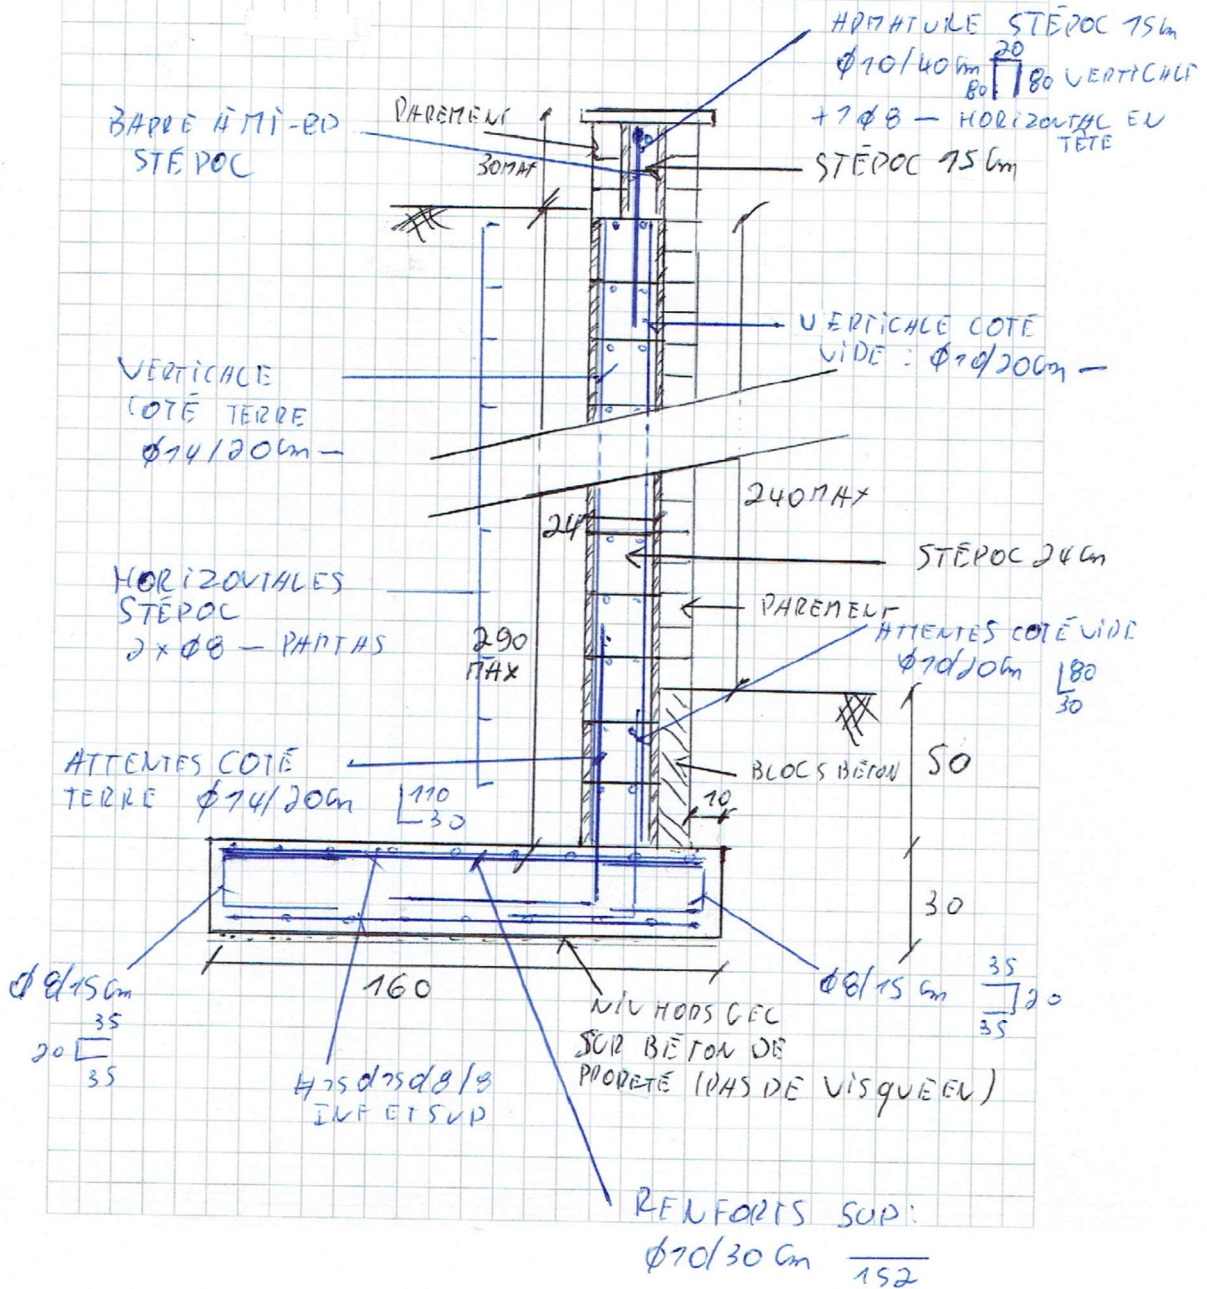 ARMATURE STÉPOC 15cm
φ10/40cm 20 80 80 VERTICALE
+1φ8 — HORIZONTAL EN
TÊTE
BARRE À MI-
STÉPOC
PAREMENT
30MAX
STÉPOC 15cm
VERTICALE COTÉ
VIDE : φ10/20cm —
VERTICALE
COTÉ TERRE
φ14/20cm —
240MAX
24
STÉPOC 24cm
HORIZONTALES
STÉPOC
2xφ8 — PAR TAS
PAREMENT
290
MAX
ATTENTES COTÉ VIDE
φ10/20cm 80
30
ATTENTES COTÉ
TERRE φ14/20cm 110
30
BLOCS BÉTON
50
10
30
160
φ8/15cm
35
20
35
φ8/15cm
35
20
35
NIV HORS GEL
SUR BÉTON DE
PROPRETÉ (PAS DE VISQUEEN)
#15d15d8/8
INF ET SUP
RENFORTS SUP:
φ10/30cm 152